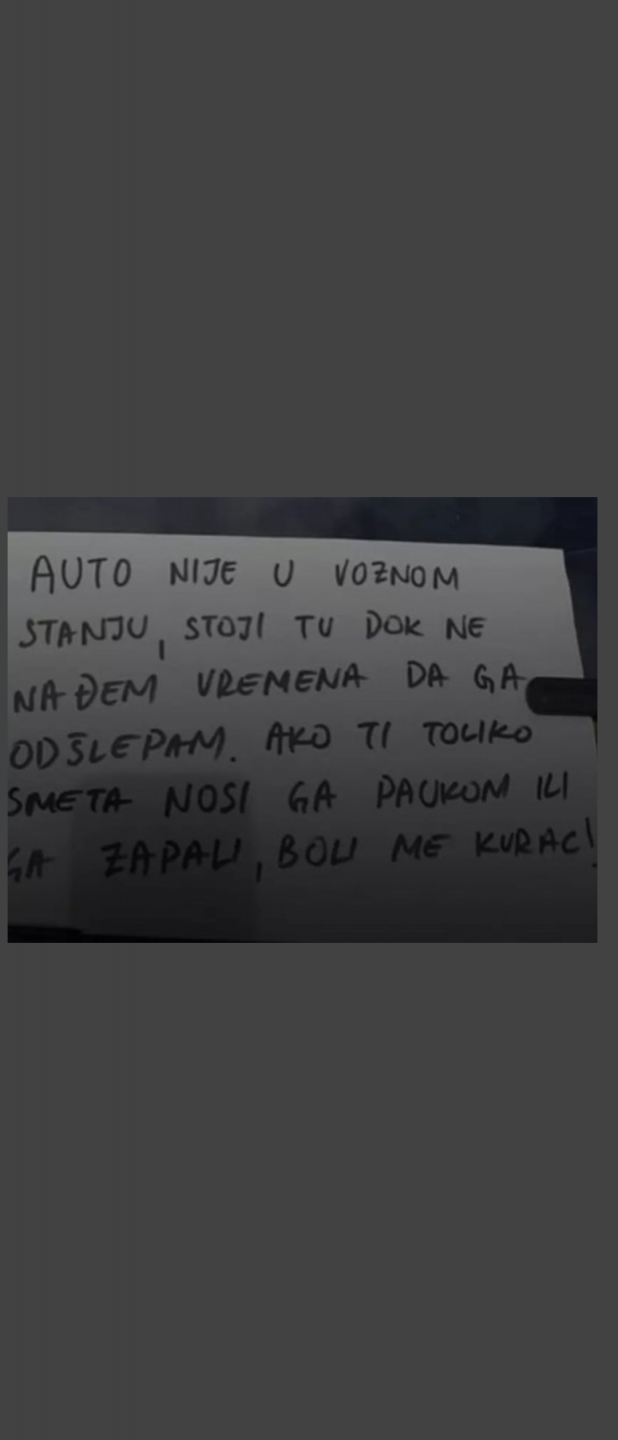 AUTO NIJE U VOZNOM
STANJU, STOJI TU DOK NE
NAĐEM VREMENA DA GA
ODŠLEPAM. AKO TI TOLIKO
SMETA NOSI GA PAUKOM ILI
GA ZAPALI, BOLI ME KURAC!